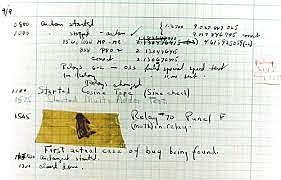 9/9
0800 antan started
1000 " stopped - antan ✓ 9.037 847 025
9.037 846 995 correct
13" uc (032) MP - MC 2.130476415
(033) PRO 2 2.130476415
correct 2.130676415
Relays 6-2 in 033 failed special speed test
in relay
Relays changed
1100 Started Cosine Tape (Sine check)
1525 Started Multi Adder Test.
1545 Relay #70 Panel F
(moth) in relay.
First actual case of bug being found.
antangent started.
1700 closed down.